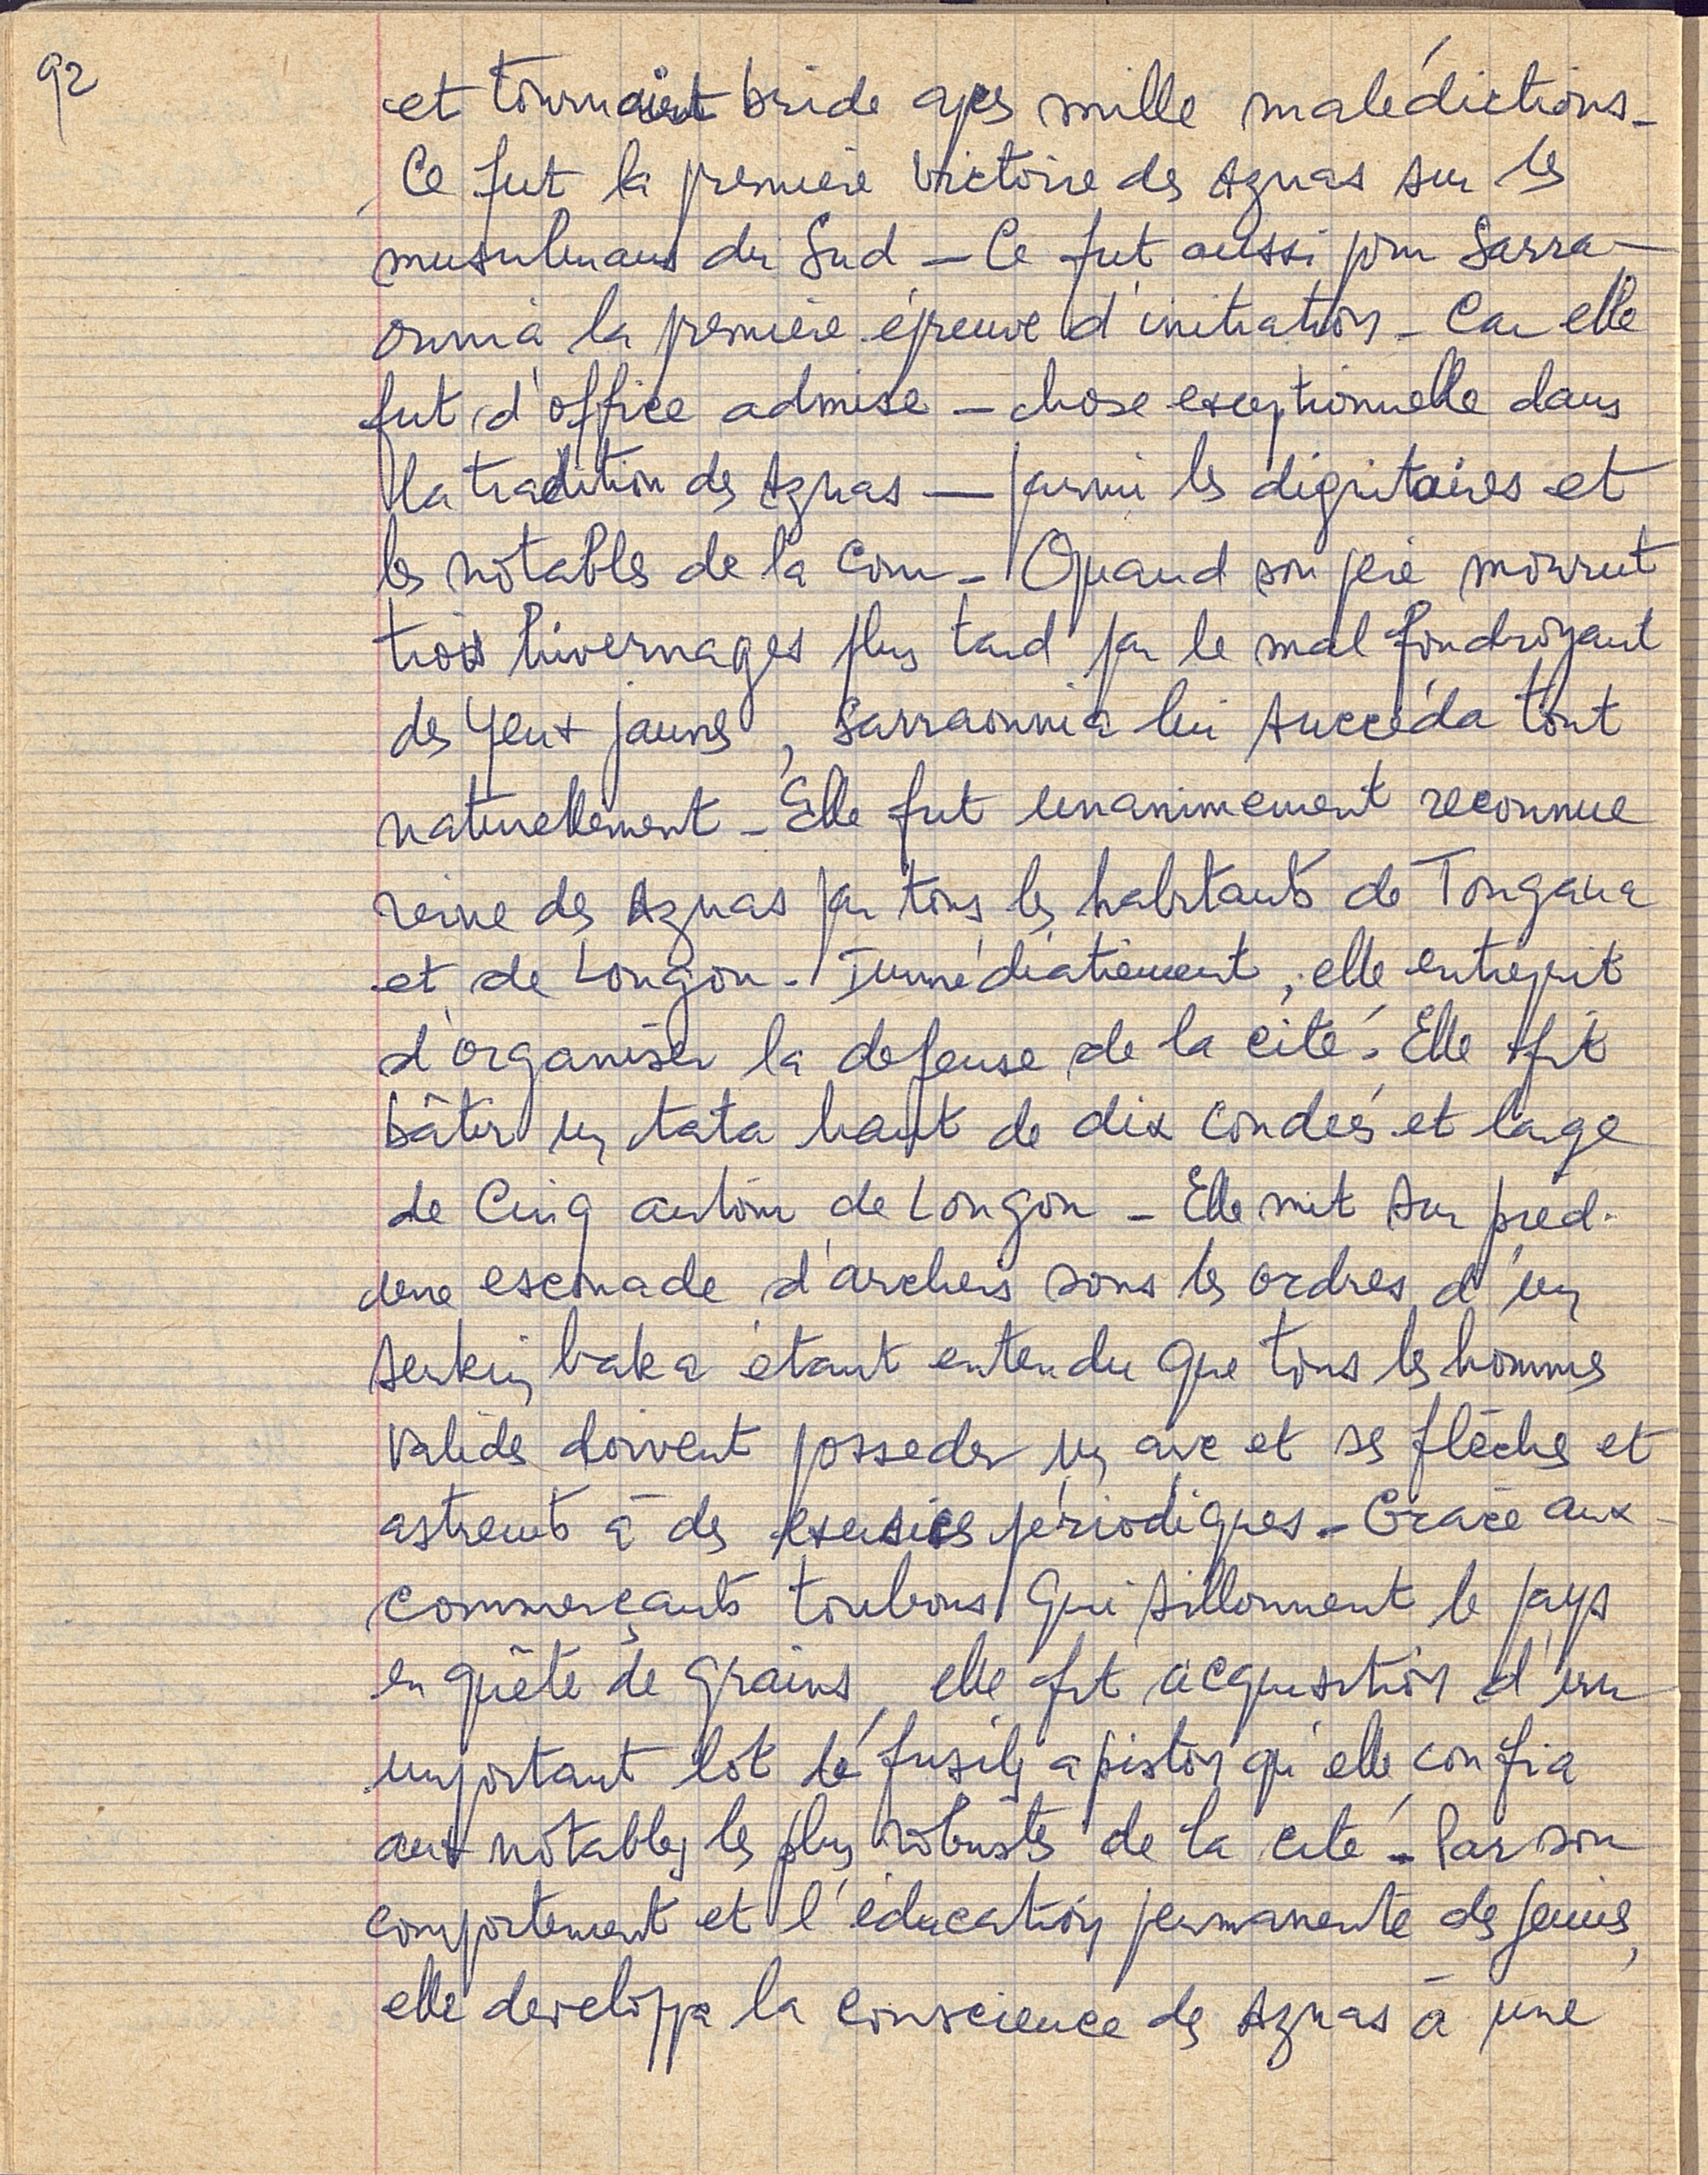 92
et tournaient bride apes mille malédictions_
Ce fut la première victoire des Aznas sur les
musulmans du Sud — Ce fut aussi pour Sarra—
ounia la première épreuve d'initiation_ Car elle
fut d'office admise — chose exceptionnelle dans
la tradition des Aznas — parmi les dignitaires et
les notables de la Cour_ Quand son père mourut
trois hivernages plus tard par le mal foudroyant
des yeux jaunes, Sarraounia lui succéda tout
naturellement _ Elle fut unanimement reconnue
reine des Aznas par tous les habitants de Tougana
et de Lougou. Immédiatement, elle entreprit
d'organiser la defense de la cité. Elle fit
bâtir un tata haut de dix coudées et large
de Cinq autour de Lougou _ Elle mit sur pied
une escouade d'archers sous les ordres d'un
serkin baka étant entendu que tous les hommes
valides doivent posseder un arc et ses flèches et
astreints à des exercices périodiques_ Grâce aux
commerçants toubous qui sillonnent le pays
en quête de grains, elle fit acquisition d'un
important lot de fusils a piston qu'elle confia
aux notables les plus robustes de la cité_ Par son
comportement et l'éducation permanente des jeunes,
elle developpa la conscience des Aznas à une